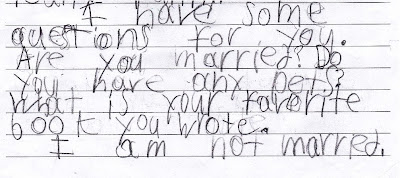 I have some
questions for you.
Are you married? Do
you have any pets?
What is your favorite
book you wrote.
I am not married.